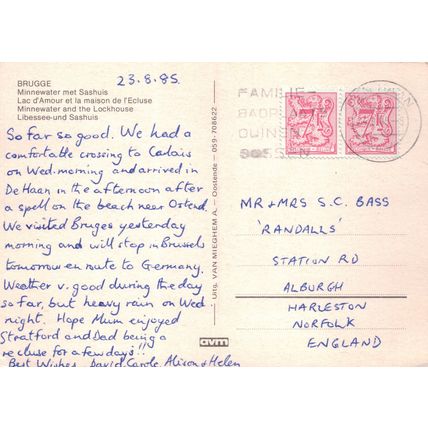 BRUGGE
Minnewater met Sashuis
Lac d'Amour et la maison de l'Ecluse
Minnewater and the Lockhouse
Libessee-und Sashuis
23.8.85.
So far so good. We had a
comfortable crossing to Calais
on Wed. morning and arrived in
De Haan in the afternoon after
a spell on the beach near Ostend.
We visited Bruges yesterday
morning and will stop in Brussels
tomorrow en route to Germany.
Weather v. good during the day
so far, but heavy rain on Wed
night. Hope Mum enjoyed
Stratford and Dad being a
recluse for a few days!!
Best Wishes David, Carole, Alison & Helen
Uitg. VAN MIEGHEM A. — Oostende — 059-708622
avm
FAMILIE-
7F
7F
MR + MRS S.C. BASS
'RANDALLS'
STATION RD
ALBURGH
HARLESTON
NORFOLK
ENGLAND